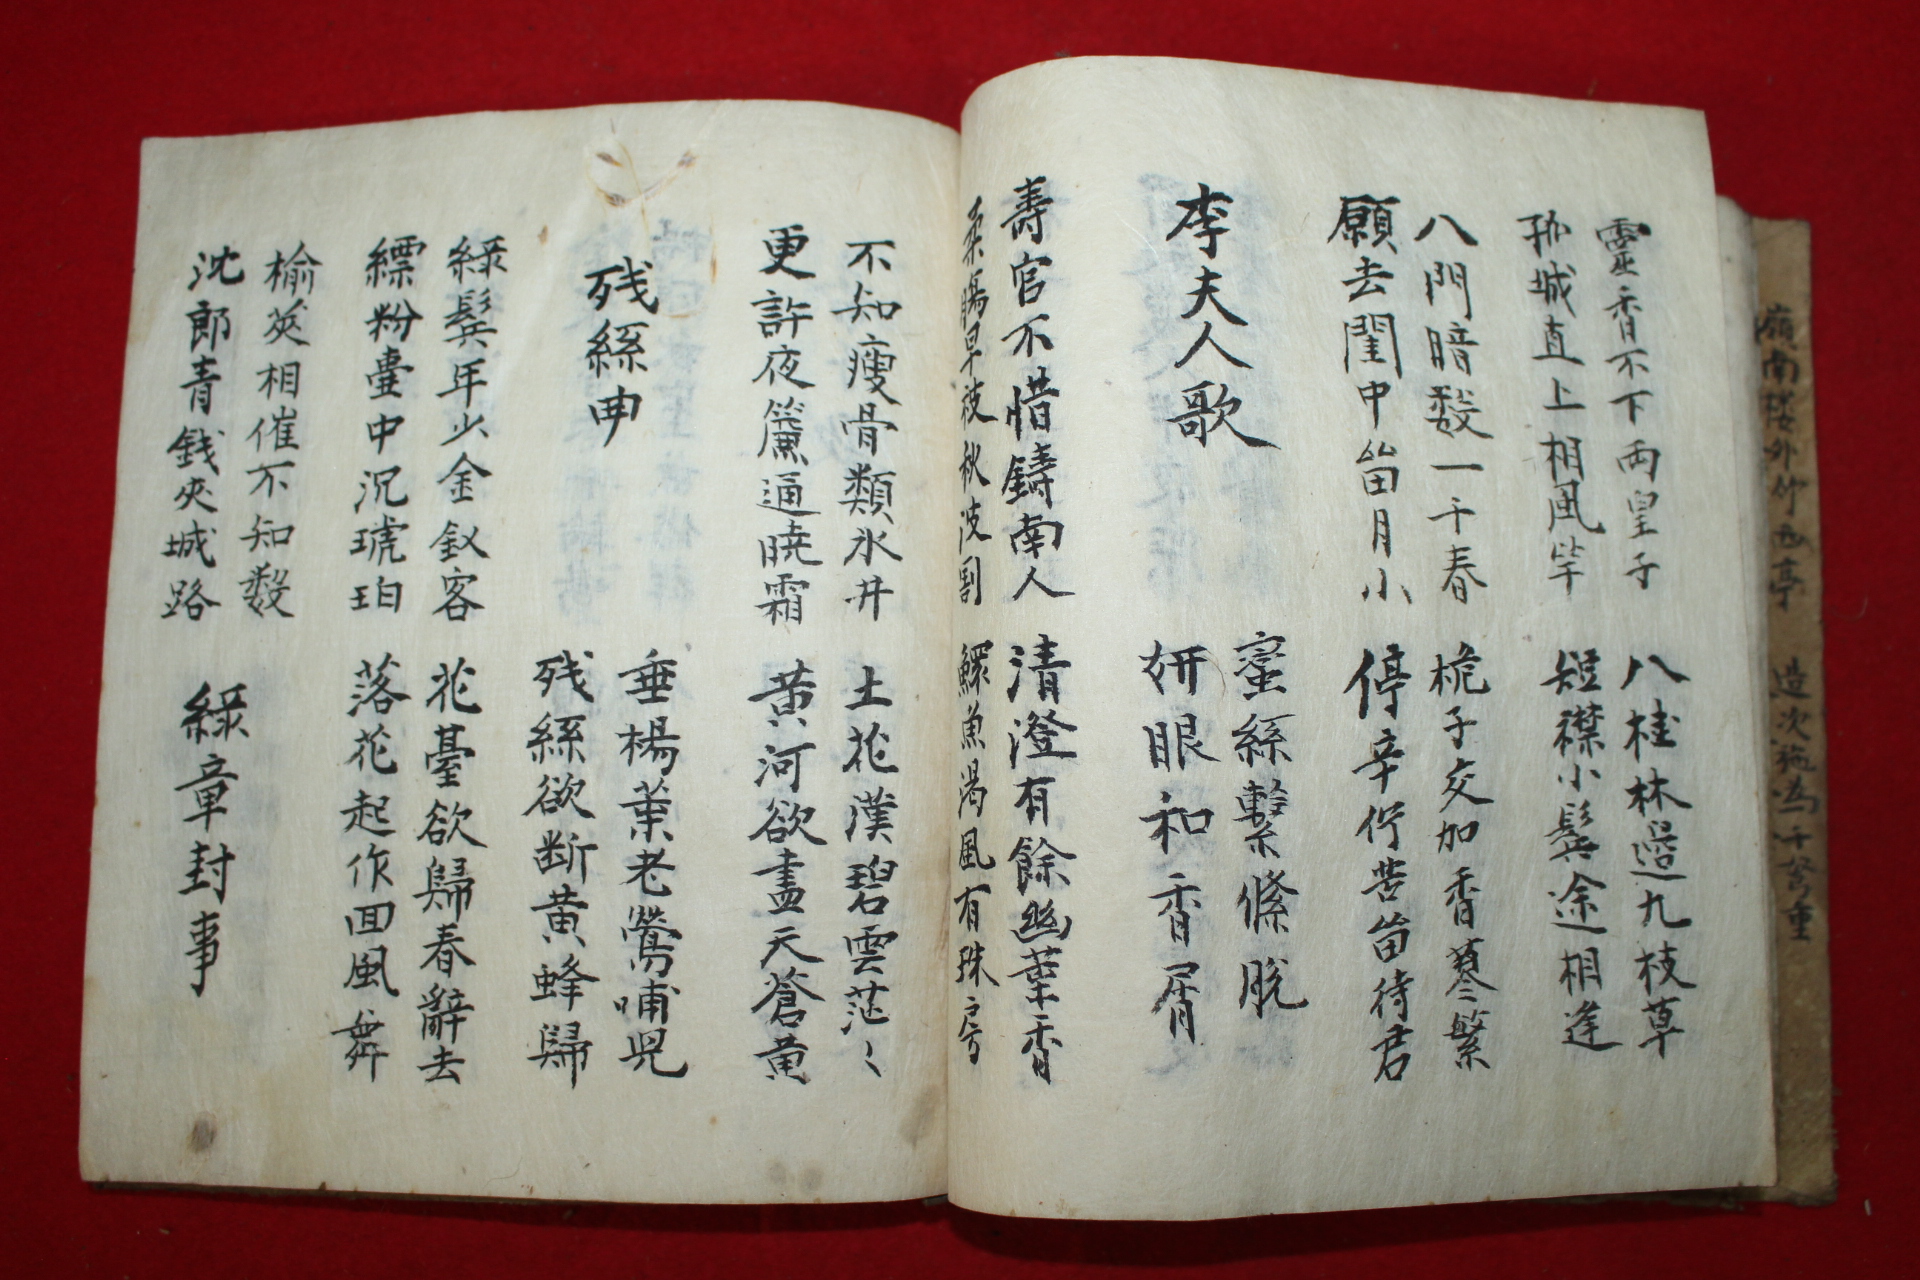 嶺南楼外竹西亭 造次施為千弩重
靈香不下兩皇子 八桂林邉九枝草
孤城直上相風竿 短襟小鬂途相逢
八門暗數一千春 桅子交加香蓼繁
願去閏中畄月小 停辛佇苦畄待君
李夫人歌 蜜絲繫絛脫
姸眼和香屑
壽官不惜鑄南人 清澄有餘幽葉香
柔膓早被秋波割 鰥魚渴風有珠房
不知瘦骨類氷井 土花漢碧雲茫〻
更許夜簾通曉霜 黃河欲盡天蒼黃
残絲曲 垂楊葉老鶯哺兒
残絲欲断黃蜂歸
綠鬂年少金釵客 花臺欲歸春辭去
縹粉臺中沉琥珀 落花起作回風舞
榆莢相催不知數
沈郎青錢夾城路 綠章封事